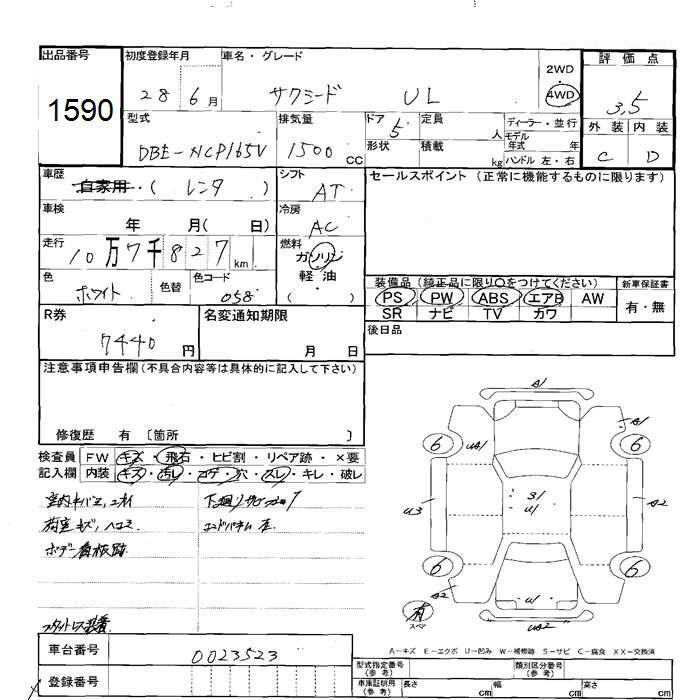 出品番号
1590
初度登録年月
28 6月
車名・グレード
サクシード UL
2WD
4WD
評価点
3.5
外装 内装
C D
型式
DBE-NCP165V
排気量
1500 CC
ドア
5
定員
人
形状
積載
kg
ディーラー・並行
モデル
年式 年
ハンドル 左・右
車歴
自家用・( レンタ )
シフト
AT
セールスポイント (正常に機能するものに限ります)
車検
年 月( 日)
冷房
AC
走行
10万7千827km
燃料
ガソリン
軽・油
( )
色
ホワイト
色替
色コード
058
装備品 (純正品に限り〇をつけてください)
新車保証書
PS PW ABS エアB AW
有・無
SR ナビ TV カワ
R券
7440 円
名変通知期限
月 日
後日品
注意事項申告欄 (不具合内容等は具体的に記入して下さい)
修復歴 有 〔箇所 〕
検査員
記入欄
FW キズ・飛石・ヒビ割・リペア跡・×要
内装 キズ・汚レ・コゲ・穴・スレ・キレ・破レ
室内キバミ、ヨゴレ
荷室キズ、ヘコミ
ボデー看板跡
スタットレス装着
A1
A1
6
6
UA1
U3
S1
U1
A2
6
6
A2
U1
UA2
有
スペア
A-キズ E-エクボ U-凹み W-補修跡 S-サビ C-腐食 XX-交換済
車台番号
0023523
登録番号
型式指定番号
(参考)
類別区分番号
(参考)
車庫証明用
(参考)
長さ cm
幅 cm
高さ cm